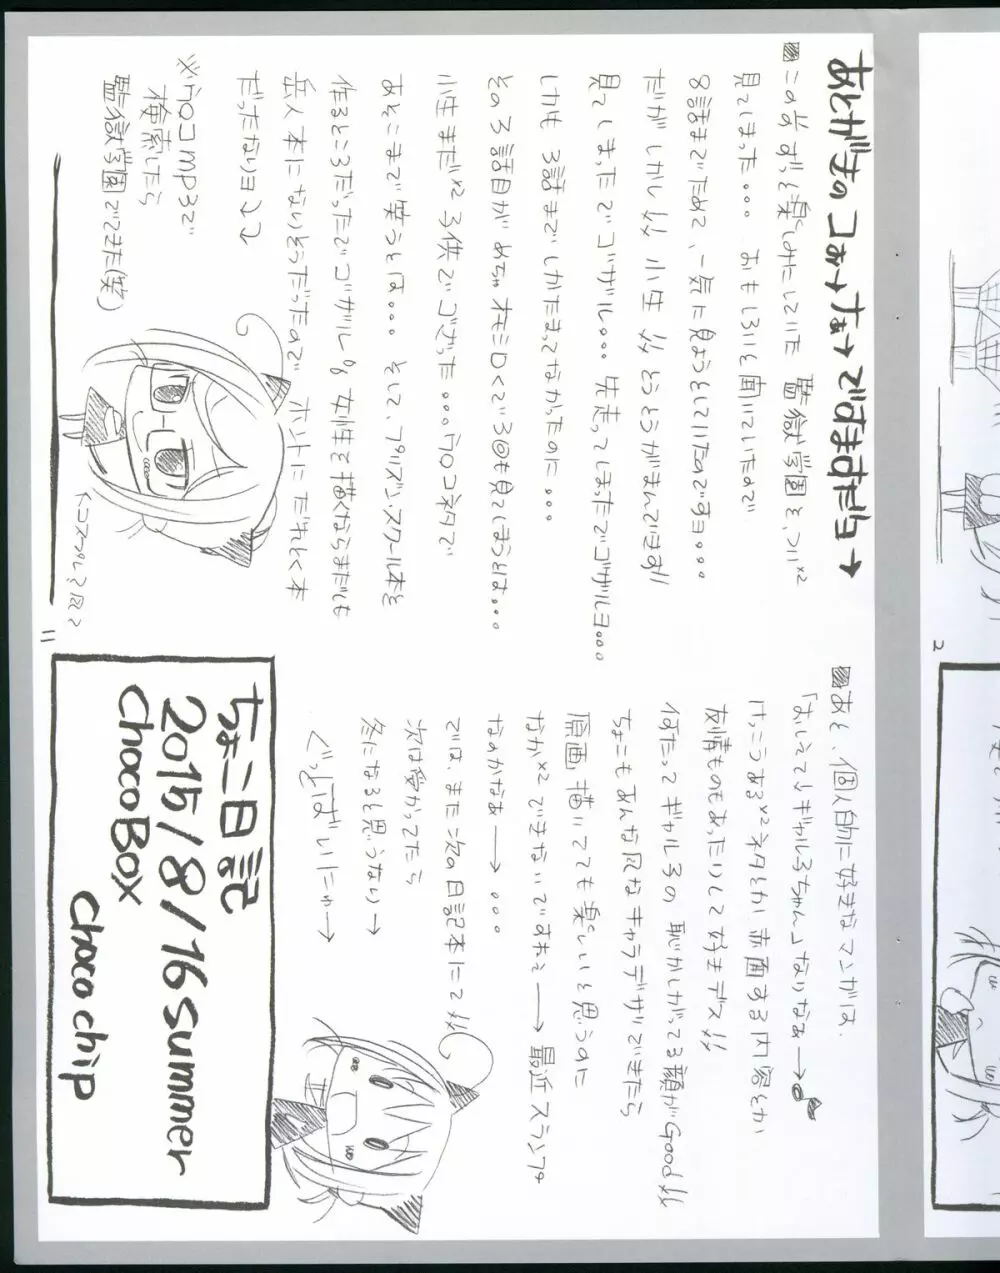 あとがきのコぉ→ナぁ→ですますだヨ→
■この前ずっと楽しみにしていた 監獄学園を、つい×2
見てしまった。。。 おもしろいと聞いていたので
8話までためて、一気に見ようとしていたのですヨ。。。
だが しかし〃 小生〃 とうとうがまんできず!!
見てしまったでゴザル。。。 先走ってしまったでゴザルヨ。。。
しかも 3話までしかたまってなかったのに。。。
その3話目が めちゃオモシロくて3回も見てしまうとは。。。
小生まだ×2 子供でござった。。。ウ○コネタで
あそこまで笑うとは。。。 そして、プリズン・スクール本を
作るところだったでゴザル。 女性を描くならまだしも
岳人本になりそうだったので ホントに だれとく本
だったなりヨ↓↓
※ウ○コmp3で
検索したら
監獄学園でてきた(笑)
11
■あと、個人的に好きなマンガは、
「おしえて! ギャル子ちゃん」なりなぁ→♪
けっこうある×2ネタとか 赤面する内容とか
友情ものもあったりして好きデス〃
何たって ギャル子の 恥かしがってる顔がGood〃
ちょこもあんな風なキャラデザできたら
原画描いてても楽しいと思うのに
なか×2 できないですねぇ→ 最近スランプか
なのかなぁ→。。。
では、また次の日記本にて〃
次は受かってたら
冬になると思うなり→
ぐっどばいにゃ→
ちょこ日記
2015/8/16 summer
chocoBox
choco chip
2